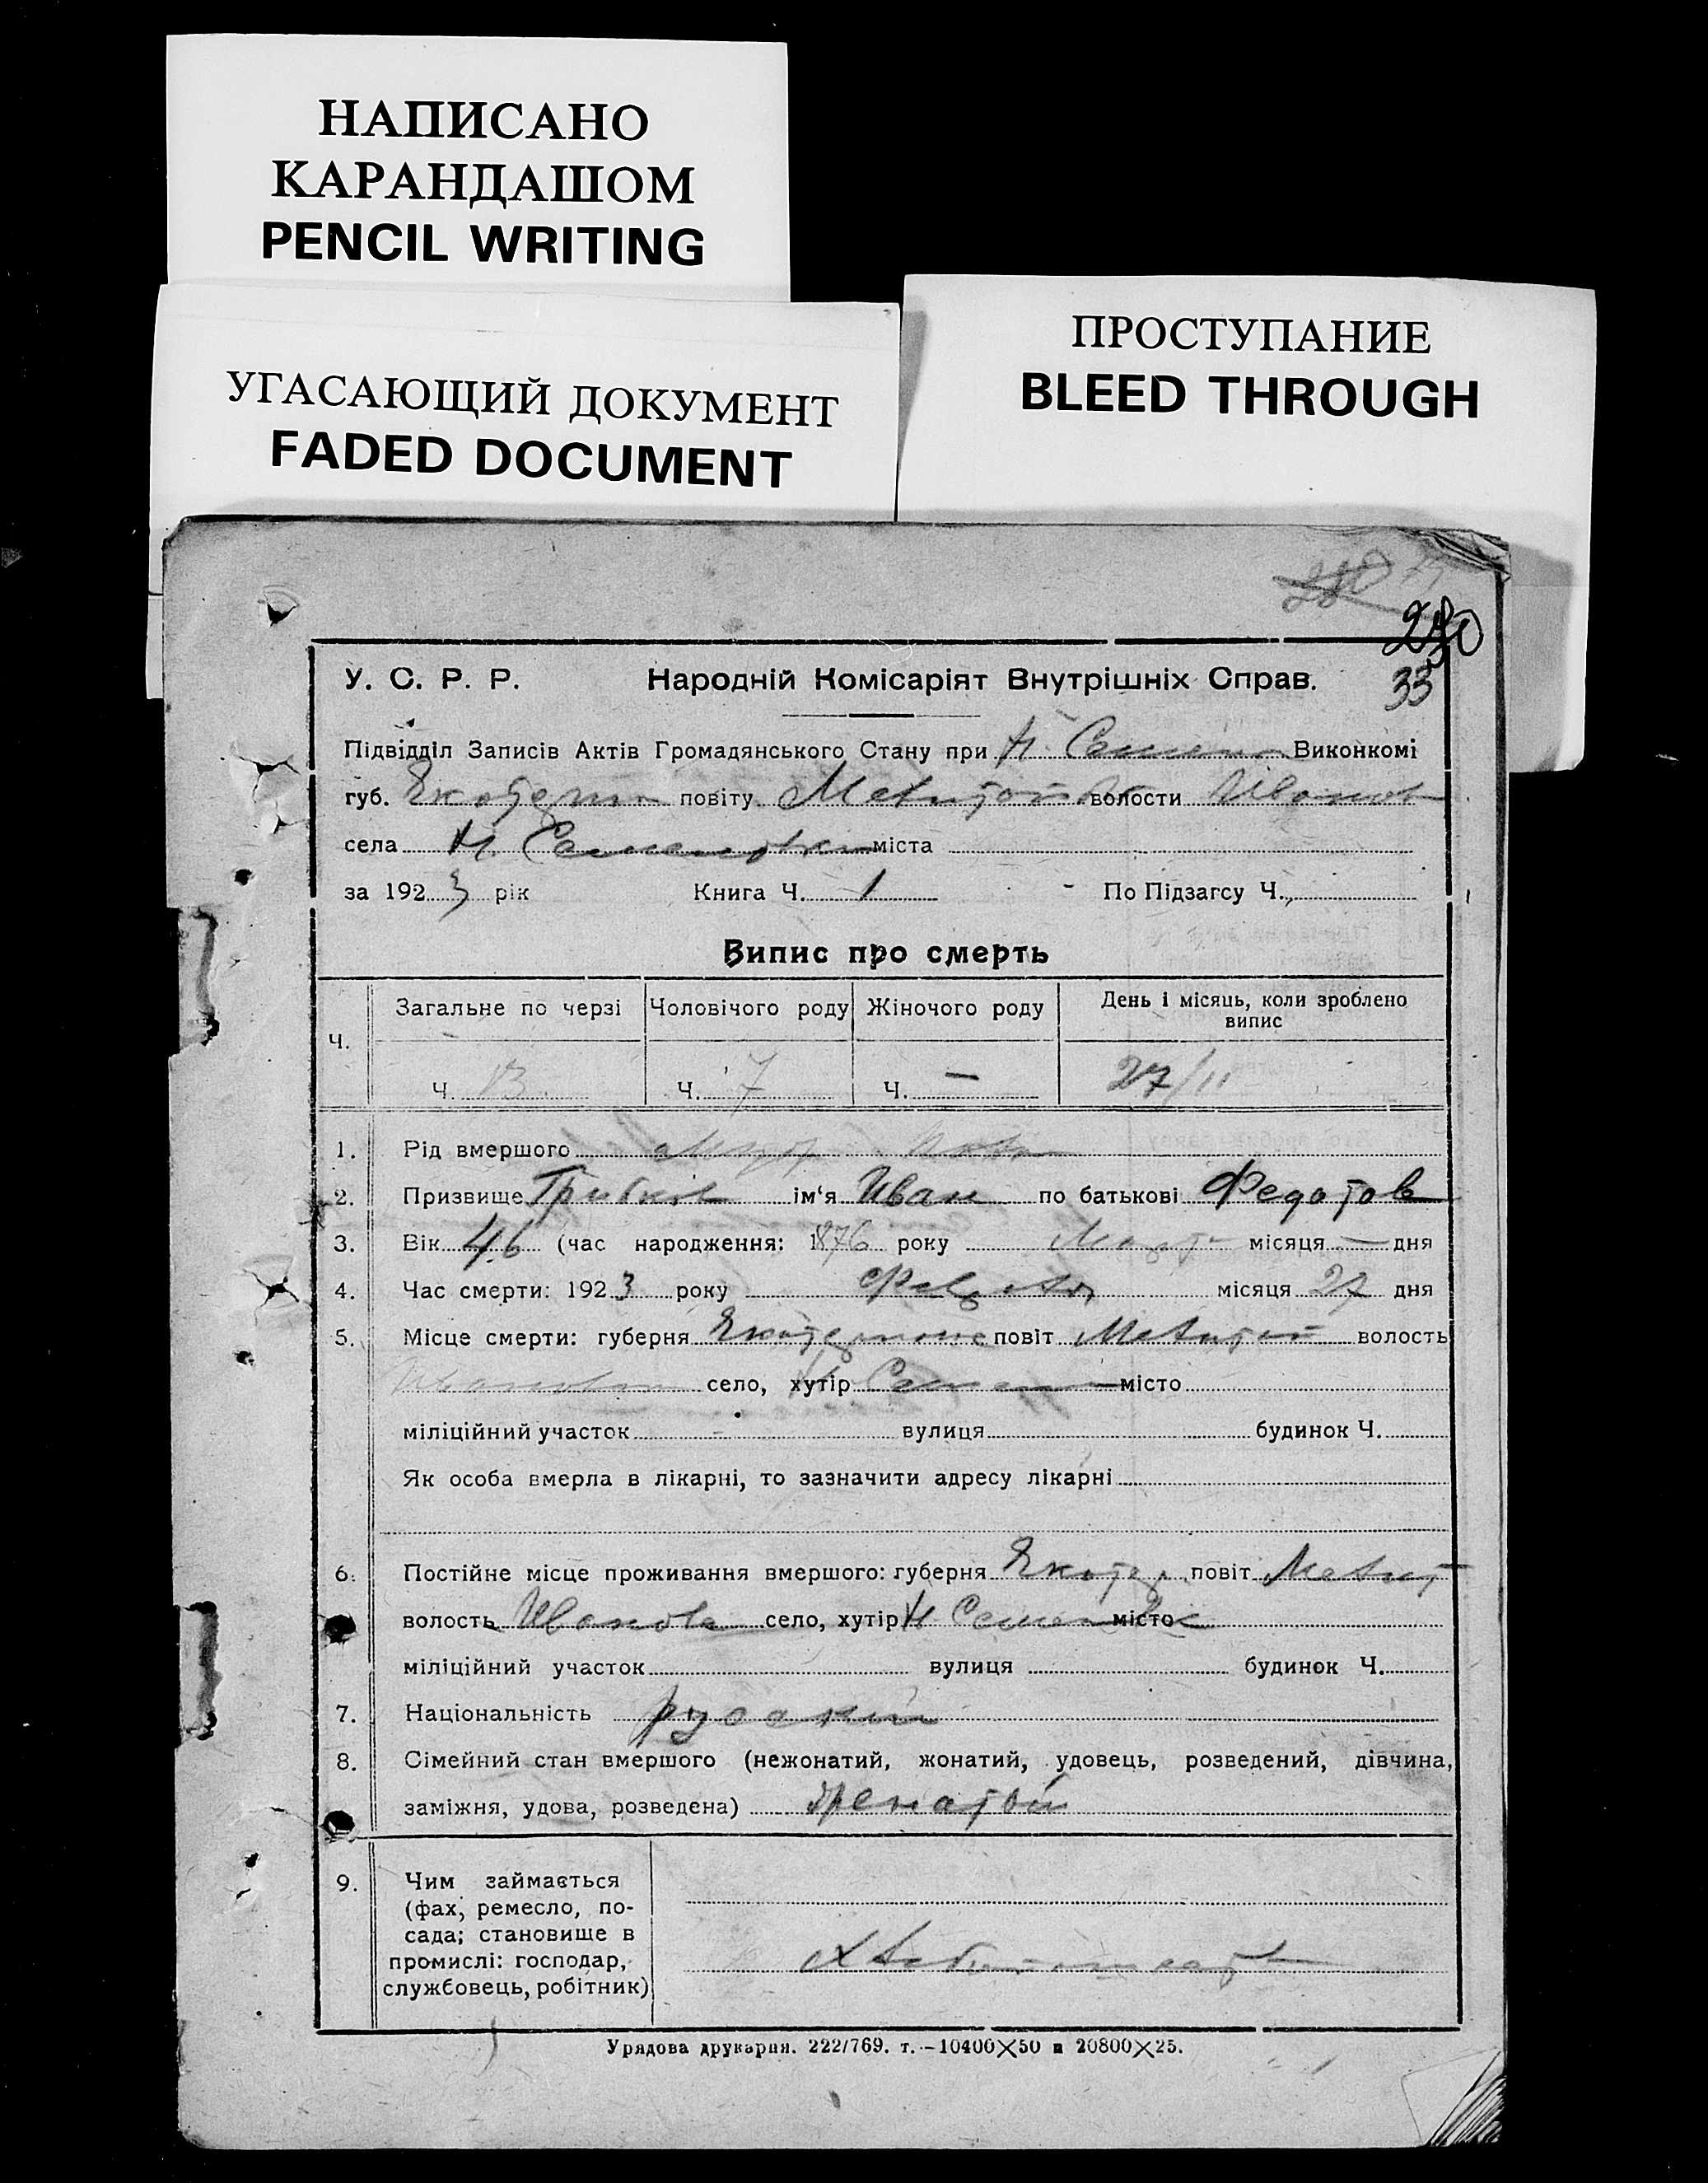 НАПИСАНО
КАРАНДАШОМ
PENCIL WRITING
УГАСАЮЩИЙ ДОКУМЕНТ
FADED DOCUMENT
ПРОСТУПАНИЕ
BLEED THROUGH
230
33
У. С. Р. Р. Народній Комісаріят Внутрішніх Справ.
Підвідділ Записів Актів Громадянського Стану при Н. Семен Виконкомі
губ. Екатерин повіту Мелитоп волости Иванов
села Н. Семеновка міста
за 1923 рік Книга Ч. 1 По Підзагсу Ч.
Випис про смерть
Ч. Загальне по черзі Чоловічого роду Жіночого роду День і місяць, коли зроблено
випис
Ч. 13 Ч. 7 Ч. — 27/II
1. Рід вмершого
2. Призвище Грибков ім'я Иван по батькові Федотов
3. Вік 46 (час народження: 1876 року Март місяця — дня
4. Час смерти: 1923 року місяця 27 дня
5. Місце смерти: губерня повіт Мелитоп волость
Иванов село, хутір Н Семен місто
міліційний участок вулиця будинок Ч.
Як особа вмерла в лікарні, то зазначити адресу лікарні
6. Постійне місце проживання вмершого: губерня Екатер повіт Мелит
волость Иванов село, хутір Н Семен місто
міліційний участок вулиця будинок Ч.
7. Національність русский
8. Сімейний стан вмершого (нежонатий, жонатий, удовець, розведений, дівчина,
заміжня, удова, розведена) женатый
9. Чим займається
(фах, ремесло, по-
сада; становище в
промислі: господар,
службовець, робітник)
Урядова друкарня. 222/769. т.—10400×50 и 20800×25.